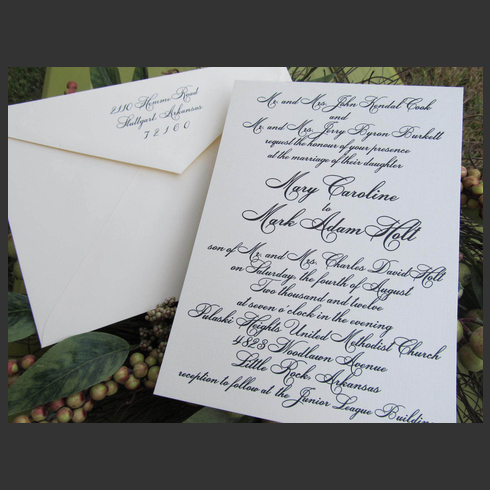 2110 Hommo Road
Stuttgart, Arkansas
72160
Mr. and Mrs. John Kendal Cook
and
Mr. and Mrs. Jerry Byron Burkett
request the honour of your presence
at the marriage of their daughter
Mary Caroline
to
Mark Adam Holt
son of Mr. and Mrs. Charles David Holt
on Saturday, the fourth of August
Two thousand and twelve
at seven o'clock in the evening
Pulaski Heights United Methodist Church
4823 Woodlawn Avenue
Little Rock, Arkansas
reception to follow at the Junior League Building